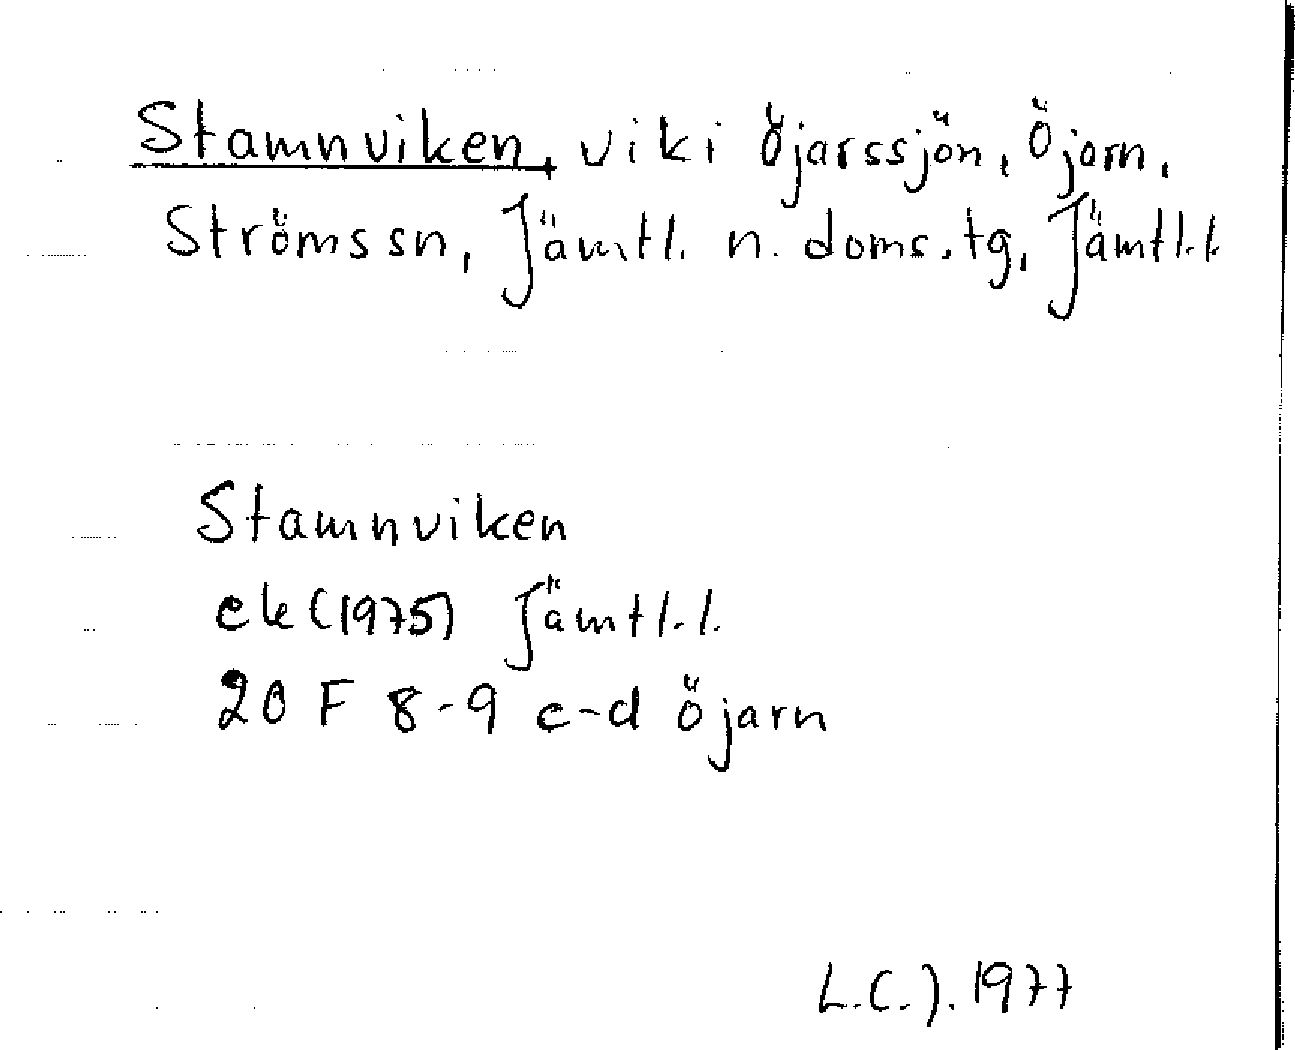 Stamnviken, vik i Öjarssjön, Öjarn,
Ströms sn, Jämtl. n. doms.tg, Jämtl.l.
Stamnviken
ek (1975) Jämtl.l.
20 F 8-9 c-d Öjarn
L.C.J. 1977